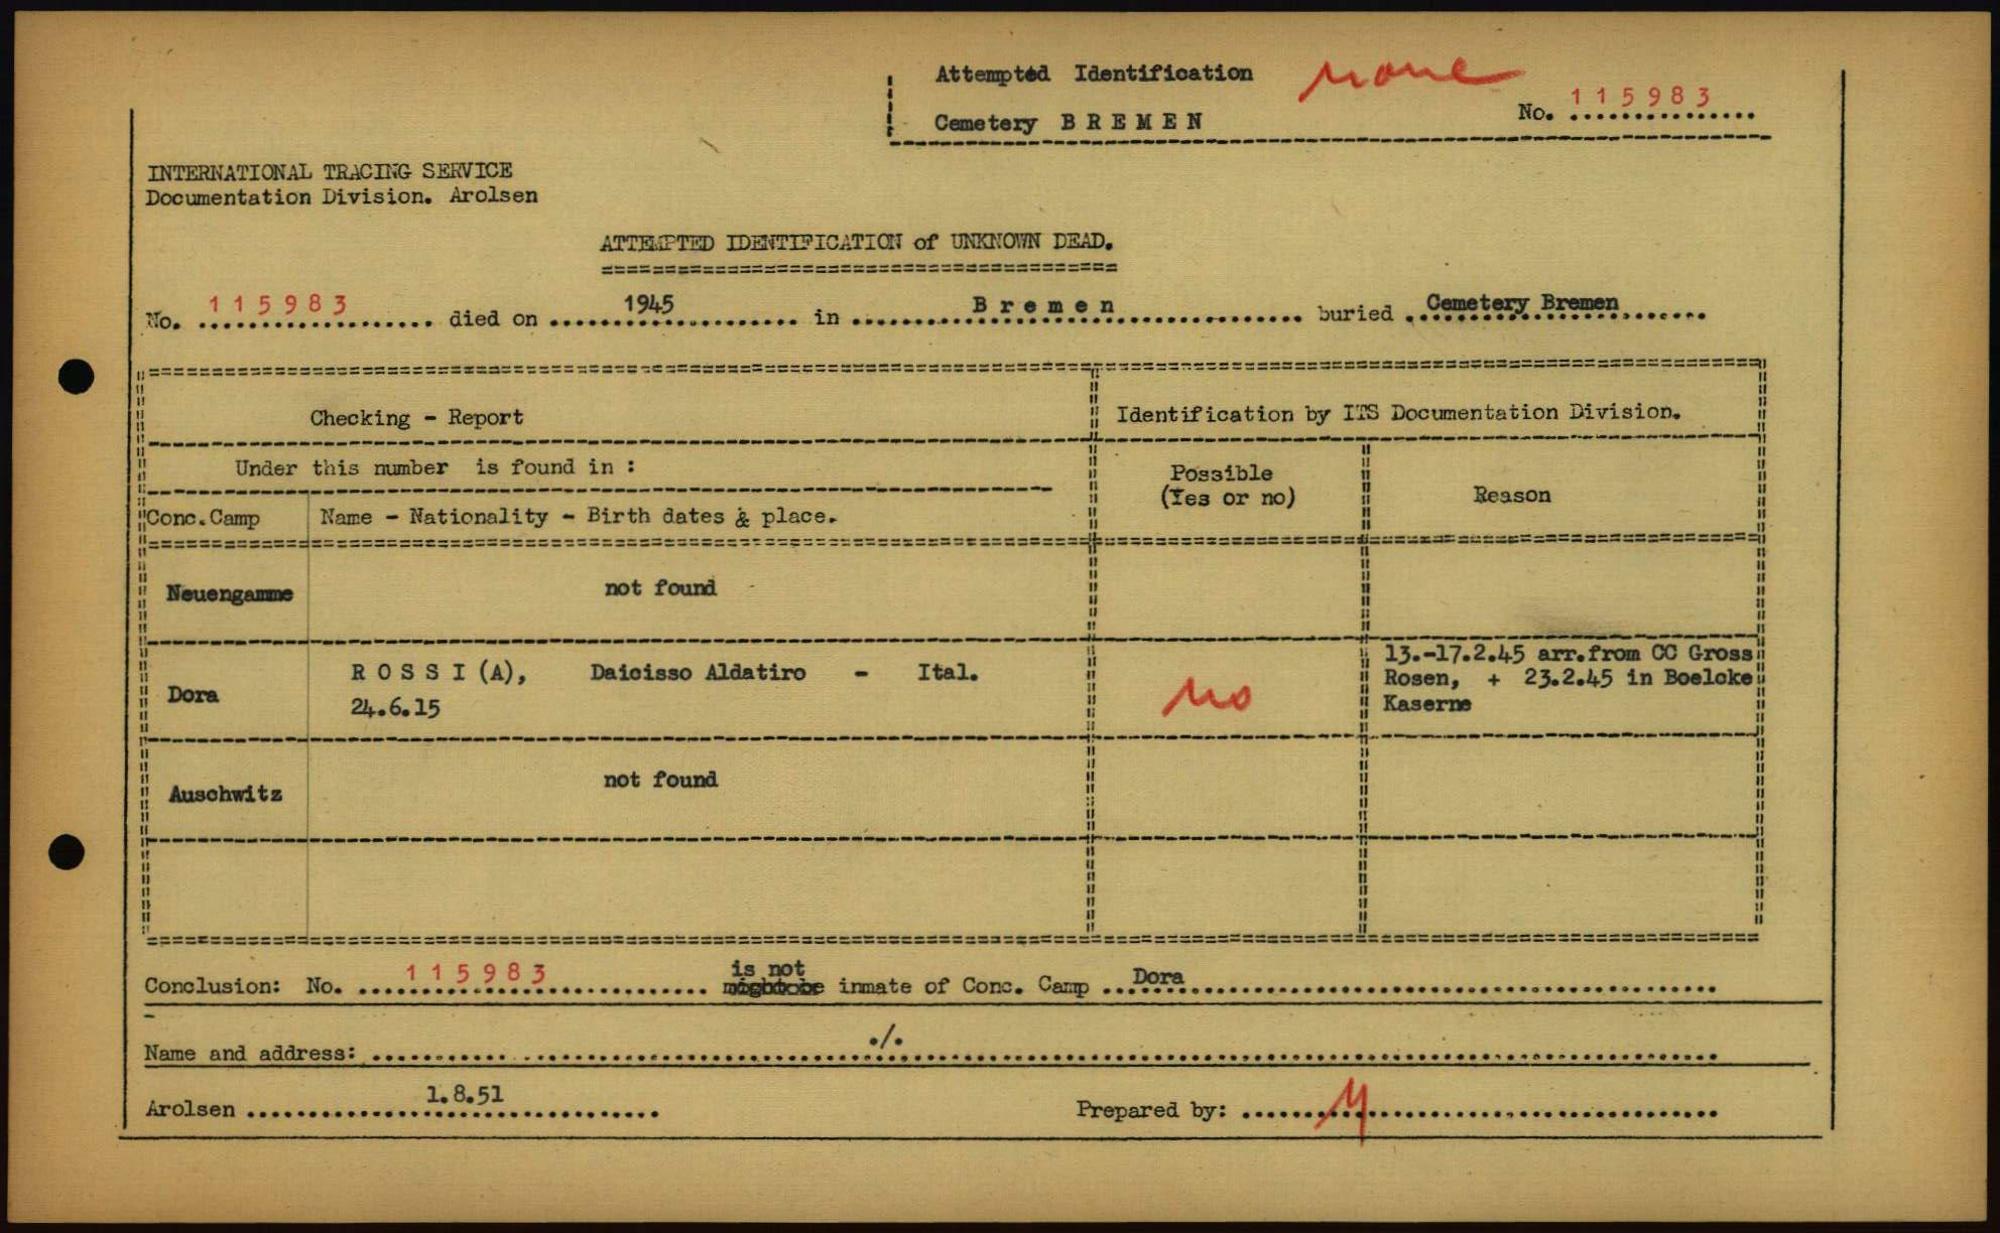 Attempted Identification none
Cemetery B R E M E N No. 115983
INTERNATIONAL TRACING SERVICE
Documentation Division. Arolsen
ATTEMPTED IDENTIFICATION of UNKNOWN DEAD.
No. 115983 died on 1945 in B r e m e n buried Cemetery Bremen
Checking - Report
Identification by ITS Documentation Division.
Under this number is found in :
Possible
(Yes or no)
Reason
Conc.Camp
Name - Nationality - Birth dates & place.
Neuengamme
not found
Dora
R O S S I (A), Daicisso Aldatiro - Ital.
24.6.15
no
13.-17.2.45 arr.from CC Gross
Rosen, + 23.2.45 in Boelcke
Kaserne
Auschwitz
not found
is not
Conclusion: No. 115983 inmate of Conc. Camp Dora
Name and address: ./.
Arolsen 1.8.51
Prepared by: